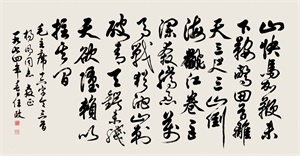 山快馬加鞭未
下鞍驚回首離
天三尺三山倒
海翻江卷巨
瀾奔騰急萬
馬戰猶酣山刺
破青天鍔未殘
天欲墮賴以
拄其間
毛主席十六字令三首
同志教正
一九 四年 任政